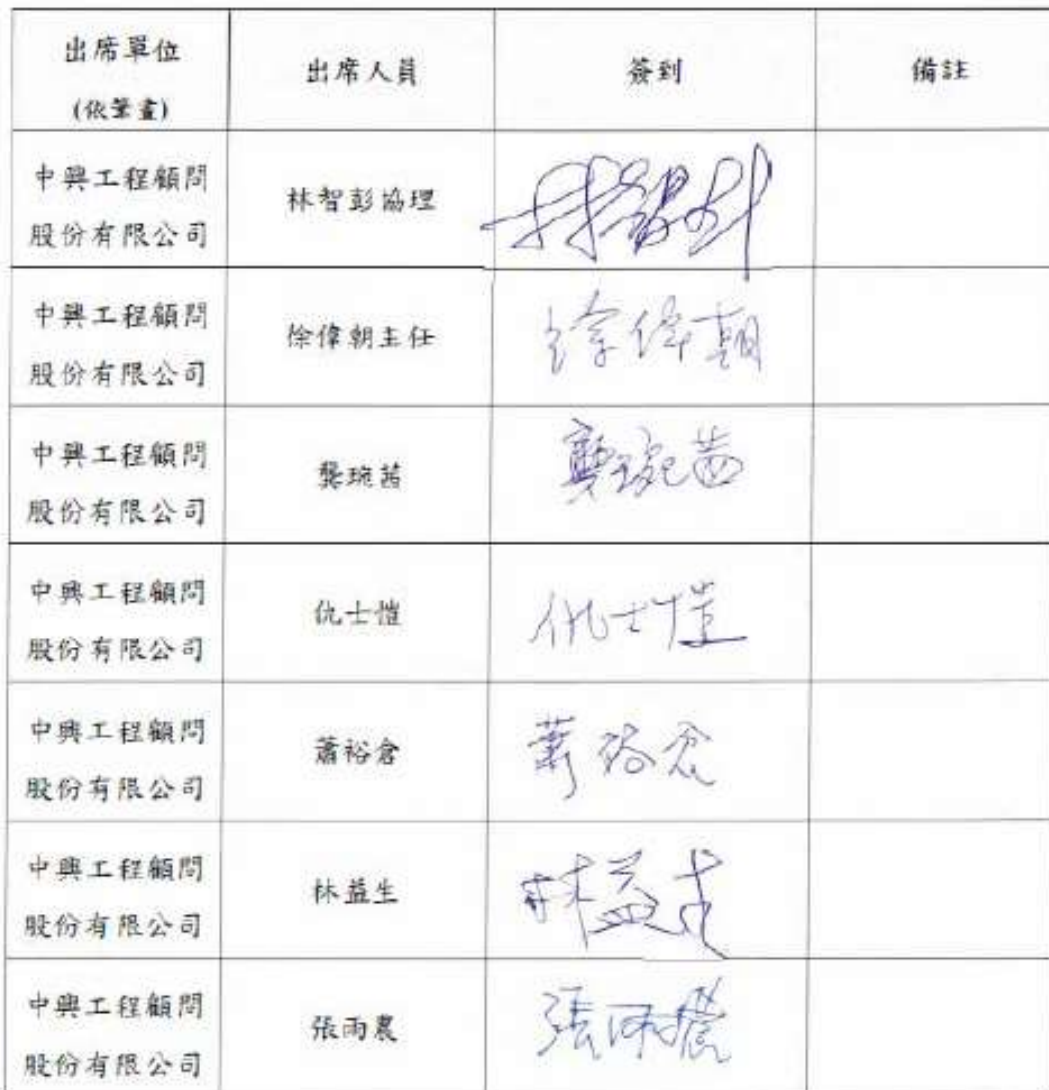 出席單位 出席人員 簽到 備註
(依筆畫)
中興工程顧問
股份有限公司 林智彭協理
中興工程顧問
股份有限公司 徐偉朝主任 徐偉朝
中興工程顧問
股份有限公司 龔琬茜 龔琬茜
中興工程顧問
股份有限公司 仇士愷 仇士愷
中興工程顧問
股份有限公司 蕭裕倉 蕭裕倉
中興工程顧問
股份有限公司 林益生 林益生
中興工程顧問
股份有限公司 張雨農 張雨農